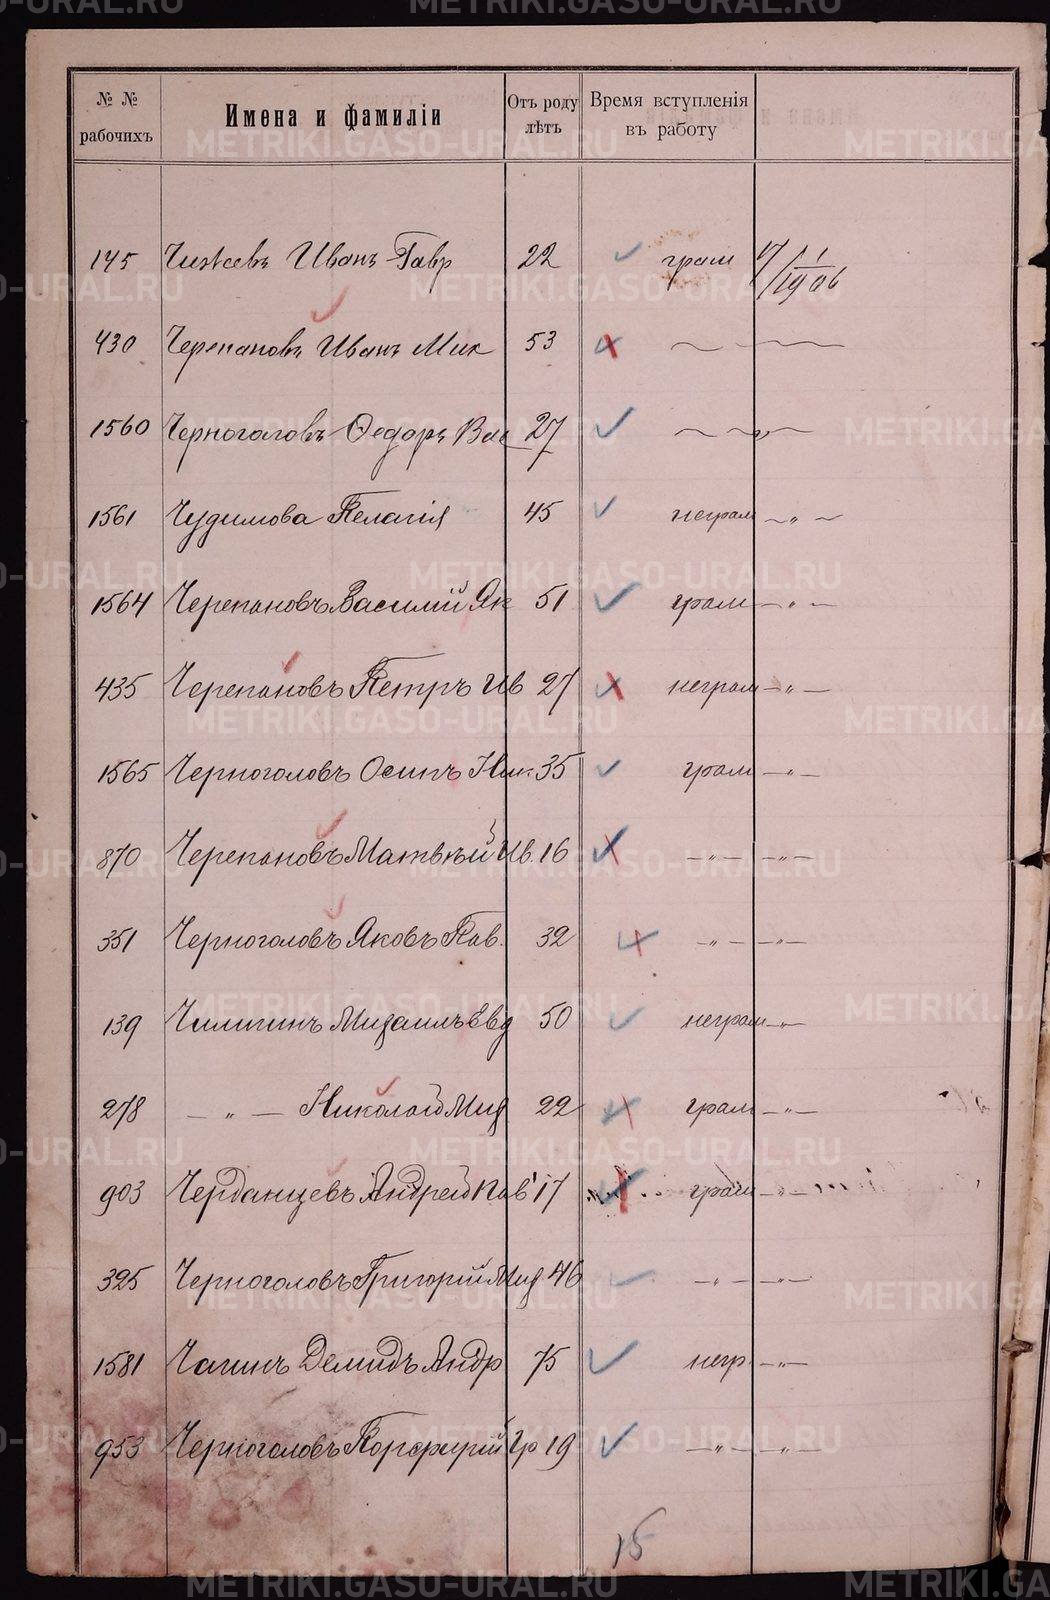 № № рабочихъ Имена и фамиліи Отъ роду лѣтъ Время вступленія въ работу
145 Иванъ Гавр 22 грам 1/1 1906
430 Черепановъ Иванъ Мих 53 — —
1560 Черноголовъ Ѳедоръ Вас 27 — „ —
1561 Чудимова Пелагія 45 неграм — „ —
1564 Черепановъ Василій Як 51 грам — „ —
435 Черепановъ Петръ Ив 27 неграм — „ —
1565 Черноголовъ Осипъ 35 грам — „ —
870 Черепановъ Матвѣй Ив. 16 — „ — — „ —
351 Черноголовъ Яковъ Пав. 32 — „ — — „ —
139 Михаилъ Евд 50 неграм — „ —
278 — „ — Николай Мих 22 грам — „ —
903 Черданцевъ Андрей Пав 17 грам — „ —
395 Черноголовъ Григорій Мих 46 — „ — — „ —
1581 Чагинъ Демидъ Андр 75 негр. — „ —
953 Черноголовъ Порфирій Гр 19 — „ — — „ —
15
METRIKI.GASO-URAL.RU